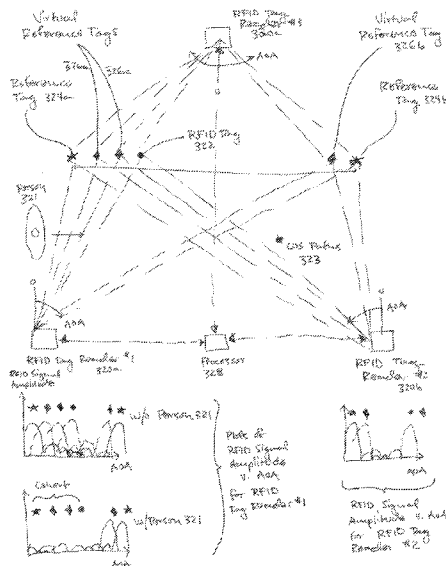 Virtual
Reference Tags
326a 326a
RFID Tag
Reader #3
320c
AOA
Virtual
Reference Tag
326b
Reference
Tag 324a
RFID Tag
322
Reference
Tag 324b
Person
321
LOS Paths
323
AOA
AOA
RFID Tag Reader #1
320a
Processor
328
RFID Tag
Reader #2
320b
RFID Signal
Amplitude
w/o Person 321
AOA
Cohort
w/ Person 321
AOA
Plots of
RFID Signal
Amplitude
v. AOA
for RFID
Tag Reader #1
AOA
RFID Signal
Amplitude v. AOA
for RFID Tag
Reader #2